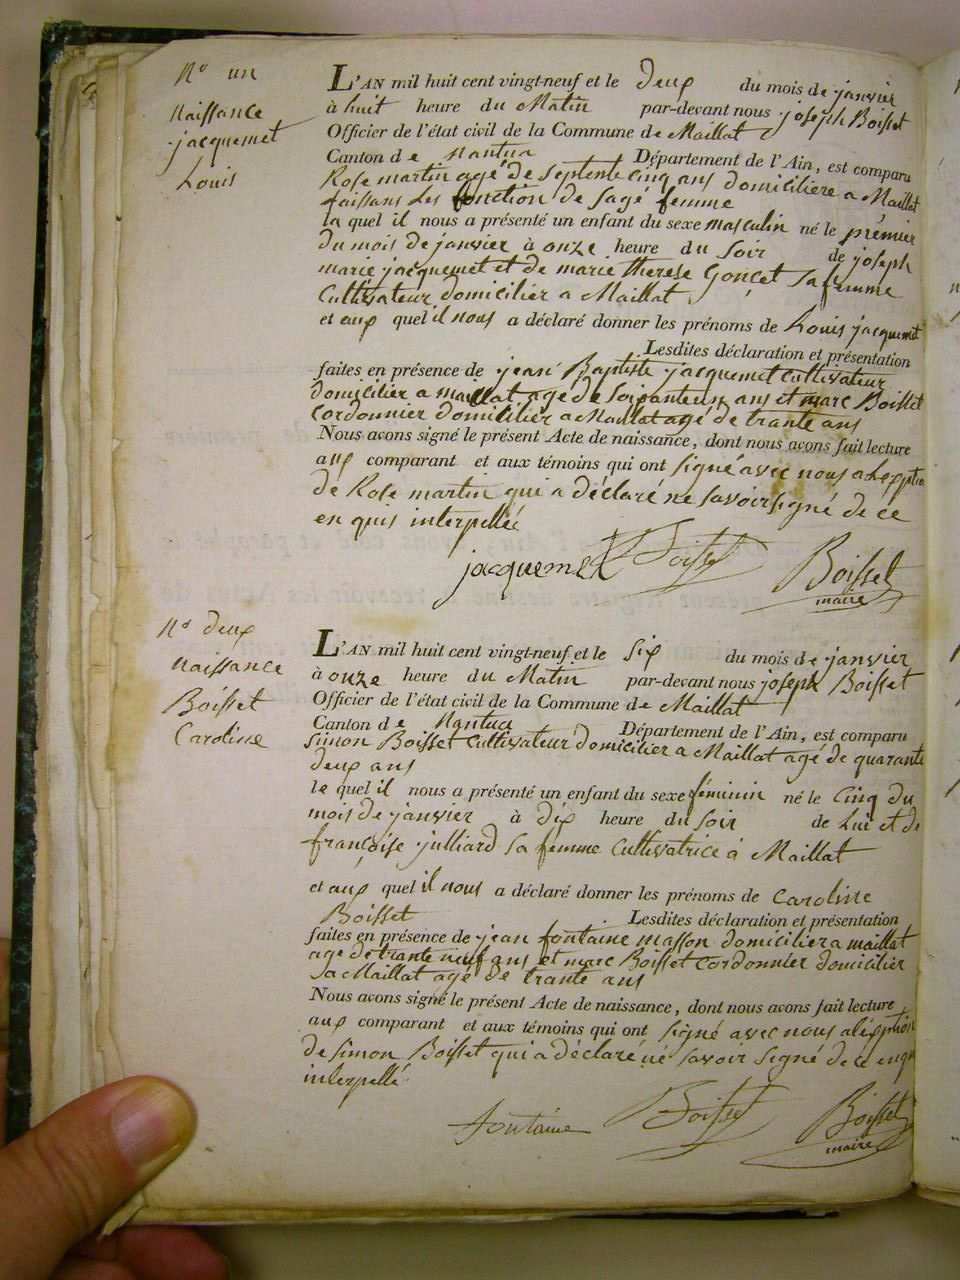 N.º un
Naissance
jacquemet
Louis
L'AN mil huit cent vingt-neuf et le deux du mois de janvier
à huit heure du Matin par-devant nous joseph Boisset
Officier de l'état civil de la Commune de Maillat
Canton de Nantua Département de l'Ain, est comparu
Rose martin agé de Septente cinq ans domiciliere a Maillat
faissans Les fonction de sage femme
la quel il nous a présenté un enfant du sexe masculin né le prémier
du mois de janvier à onze heure du Soir de joseph
marie jacquemet et de marie therese Goncet sa femme
Cultivateur domicilier a Maillat
et aux quel il nous a déclaré donner les prénoms de Louis jacquemet
Lesdites déclaration et présentation
faites en présence de jean Baptiste jacquemet cultivateur
domicilier a maillat agé de Soixanteun ans et marc Boisset
Cordonnier domicilier a Maillat agé de trante ans
Nous avons signé le présent Acte de naissance, dont nous avons fait lecture
aux comparant et aux témoins qui ont signé avec nous a lexeption
de Rose martin qui a déclaré ne savoir signé de ce
en quis interpellée
jacquemet Boisset Boisset
maire
N.º deux
Naissance
Boisset
Caroline
L'AN mil huit cent vingt-neuf et le Six du mois de janvier
à onze heure du Matin par-devant nous joseph Boisset
Officier de l'état civil de la Commune de Maillat
Canton de Nantua Département de l'Ain, est comparu
Simon Boisset Cultivateur domicilier a Maillat agé de quarante
deux ans
le quel il nous a présenté un enfant du sexe féminin né le Cinq du
mois de janvier à dix heure du Soir de Lui et de
françoise julliard sa femme Cultivatrice à Maillat
et aux quel il nous a déclaré donner les prénoms de Caroline
Boisset Lesdites déclaration et présentation
faites en présence de jean fontaine masson domicilier a maillat
agé de trante neuf ans et marc Boisset Cordonnier domicilier
sa Maillat agé de trante ans
Nous avons signé le présent Acte de naissance, dont nous avons fait lecture
aux comparant et aux témoins qui ont signé avec nous a léxption
de Simon Boisset qui a déclaré né savoir signé de ce enqui
interpellé
fontaine Boisset Boisset
maire